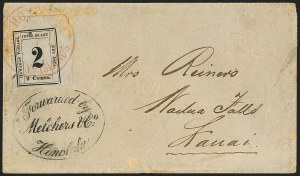 INTER ISLAND
2
2 Cents.
Forwarded by
Melchers & Co.
Honolulu
Mrs Reiners
Wailua Falls
Kauai.